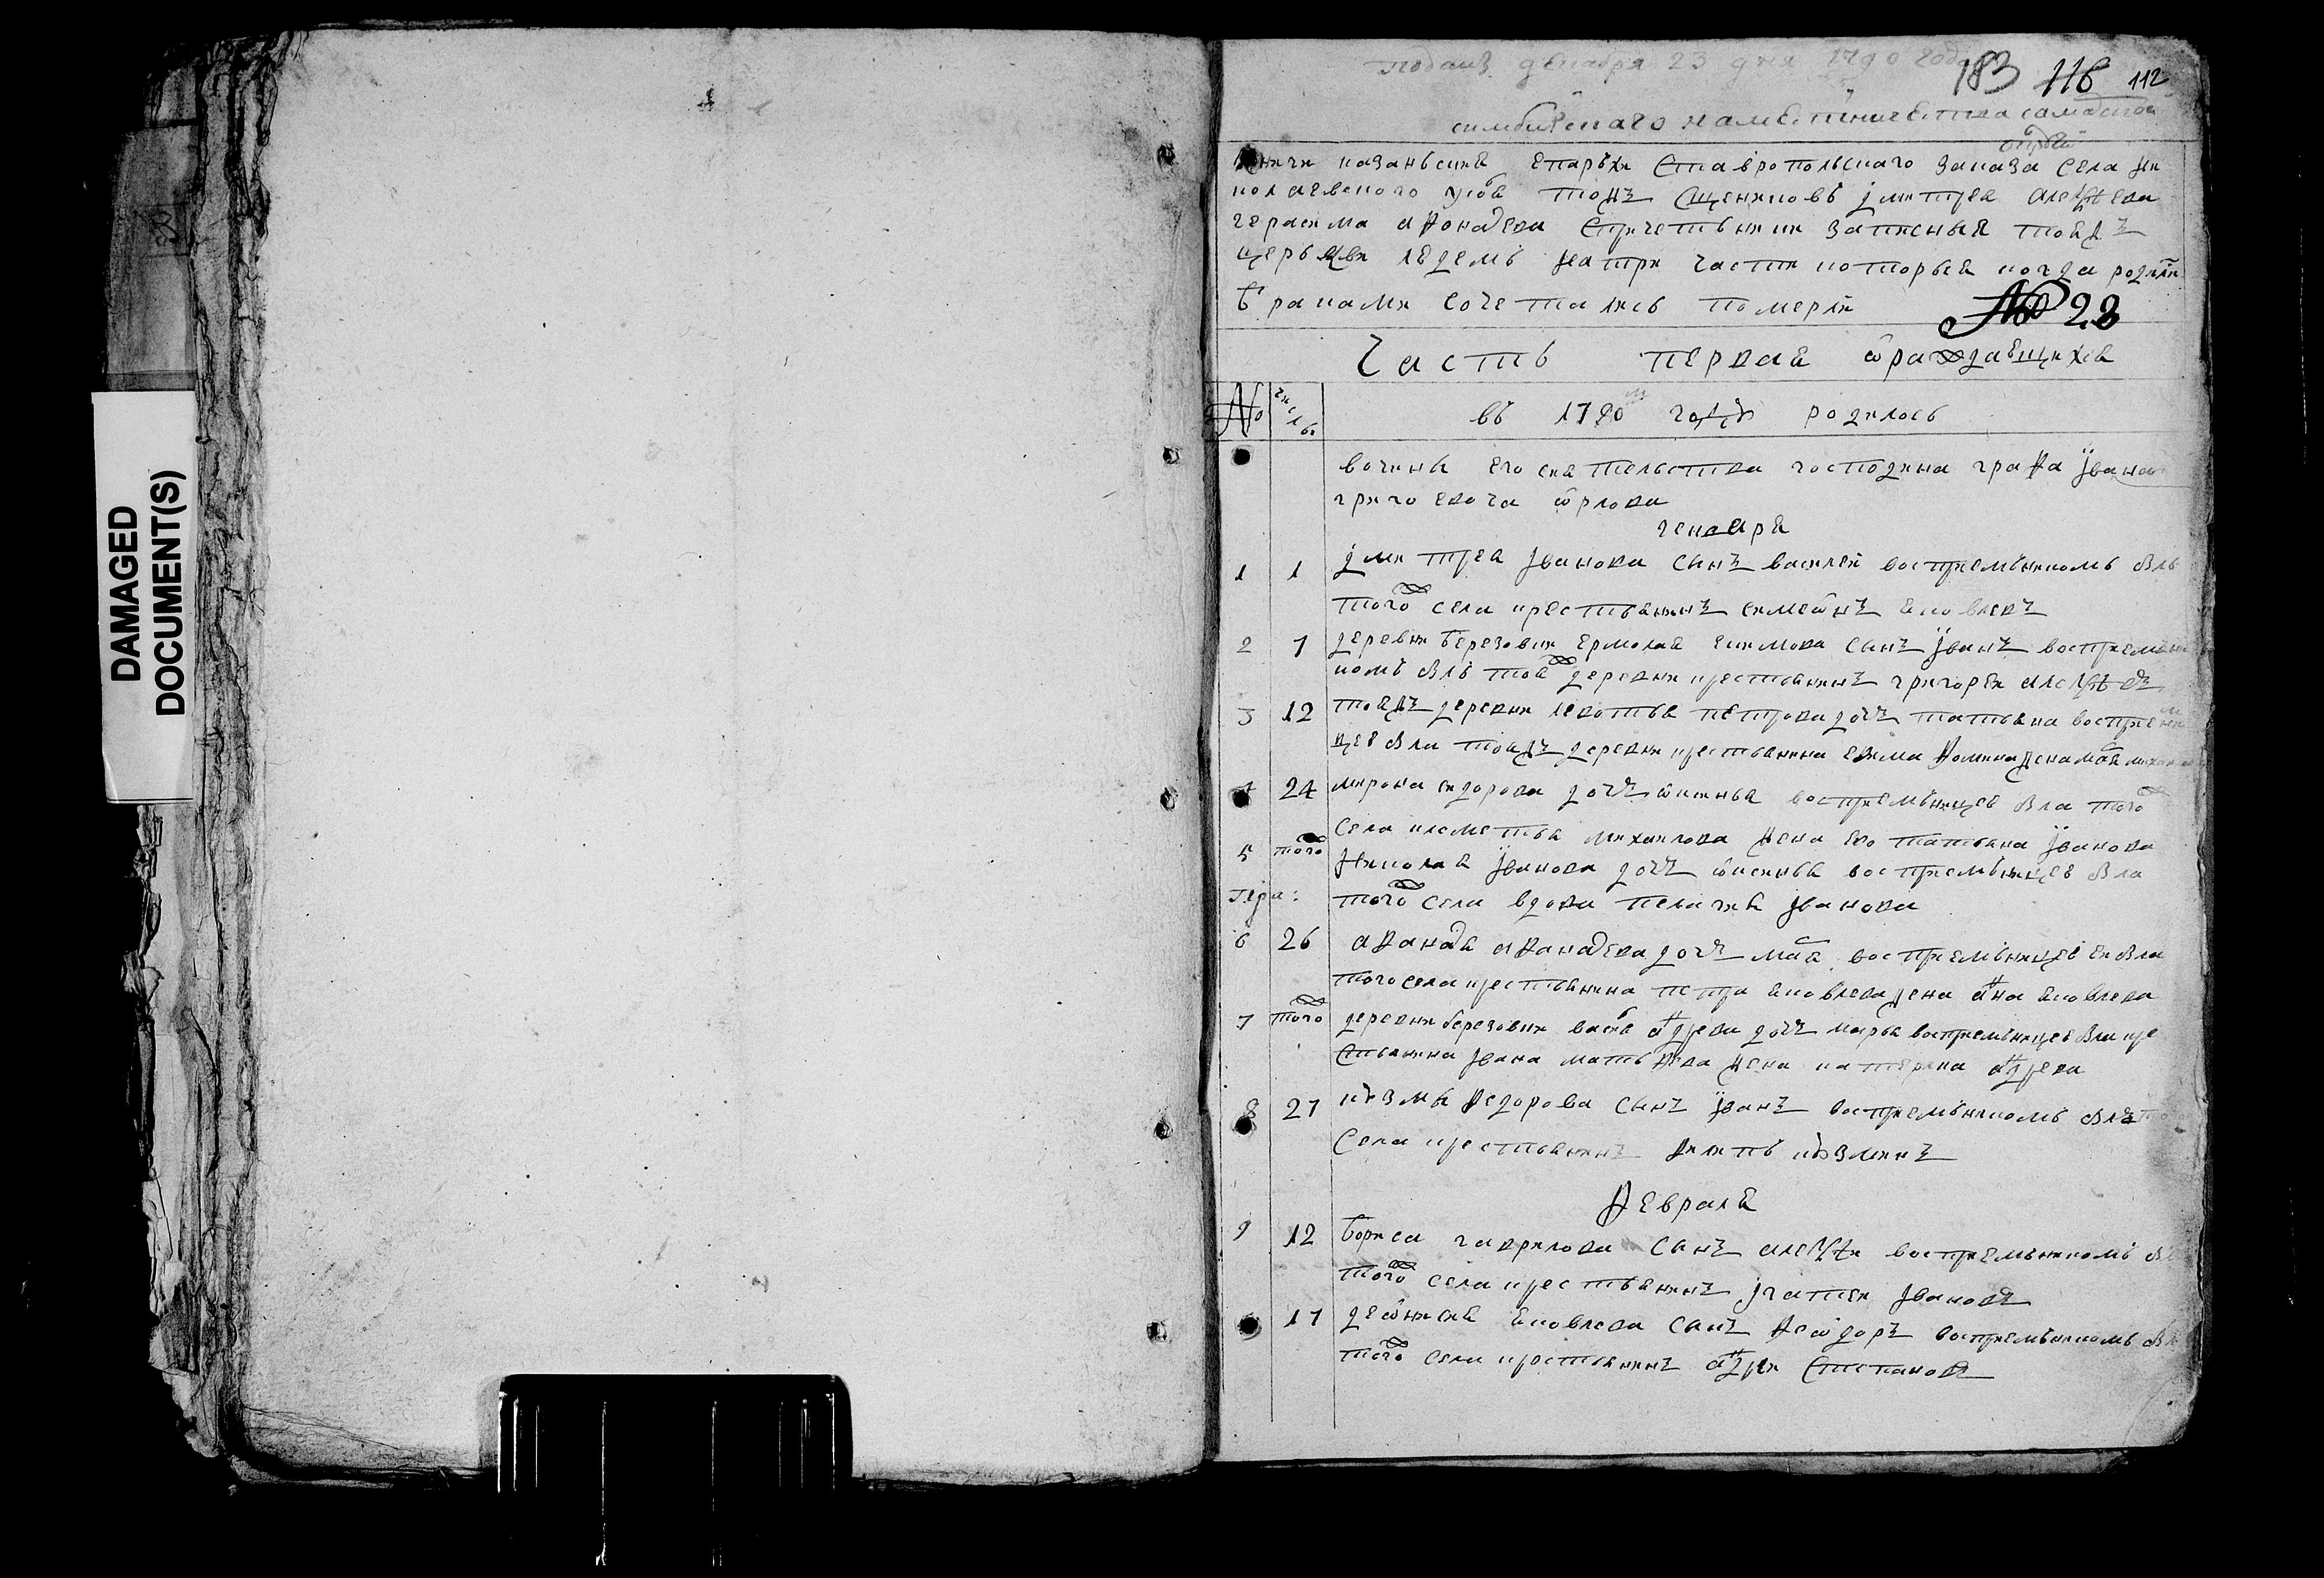 DAMAGED
DOCUMENT(S)
подана декабря 23 дня 1790 года
183 116 112
симбирскаго наместничества самарской
округи
книги казаньския епархи ставропольскаго заказа села ни
колаевского тояжъ священниковъ димитрея алеѯеева
герасима афонасева спричетники записныя тояжъ
церькви людемъ натри части которыя когда родили
браками сочетались померли № 22
Часть первая ѿраждающихся
№ числа въ 1790м году родилось
вочина его сиятельства господина графа ивана
григоевича ѡрлова
генваря
1 1 димитрея иванова сынъ василей восприемникомъ былъ
того ж села крестьянинъ симеѡнъ яковлевъ
2 1 деревни березовки ермолая екимова сынъ иванъ восприемни
комъ былъ тоя ж деревни крестьянинъ григореи алеѯеевъ
3 12 тояжъ деревни леѡнтья петрова дочь татьяна восприемни
цею была тояжъ деревни крестьянина ефима фомина жена марья
4 24 мирона сидорова дочь ѯенья восприемницею была того ж
села клементья михаилова жена ево татьяна иванова
5 того ж николая иванова дочь ѯенья восприемницею была
того ж села вдова пелагия иванова
6 26 афанася афанасева дочь марья восприемницею была
того села крестьянина петра яковлева жена анна яковлева
7 того ж деревни березовки василья андреева дочь марья восприемницею была кре
стьянина ивана матьфеева жена катерина андреева
8 27 козмы федорова сынъ иванъ восприемникомъ былъ
села крестьянинъ филипъ козминъ
февраля
9 12 бориса гаврилова сынъ алеѯеи восприемникомъ
того ж села крестьянинъ игнатеи ивановъ
17 деѡнисия яковлева сынъ феѡдоръ восприемникомъ
того ж села крестьянинъ андреи степановъ